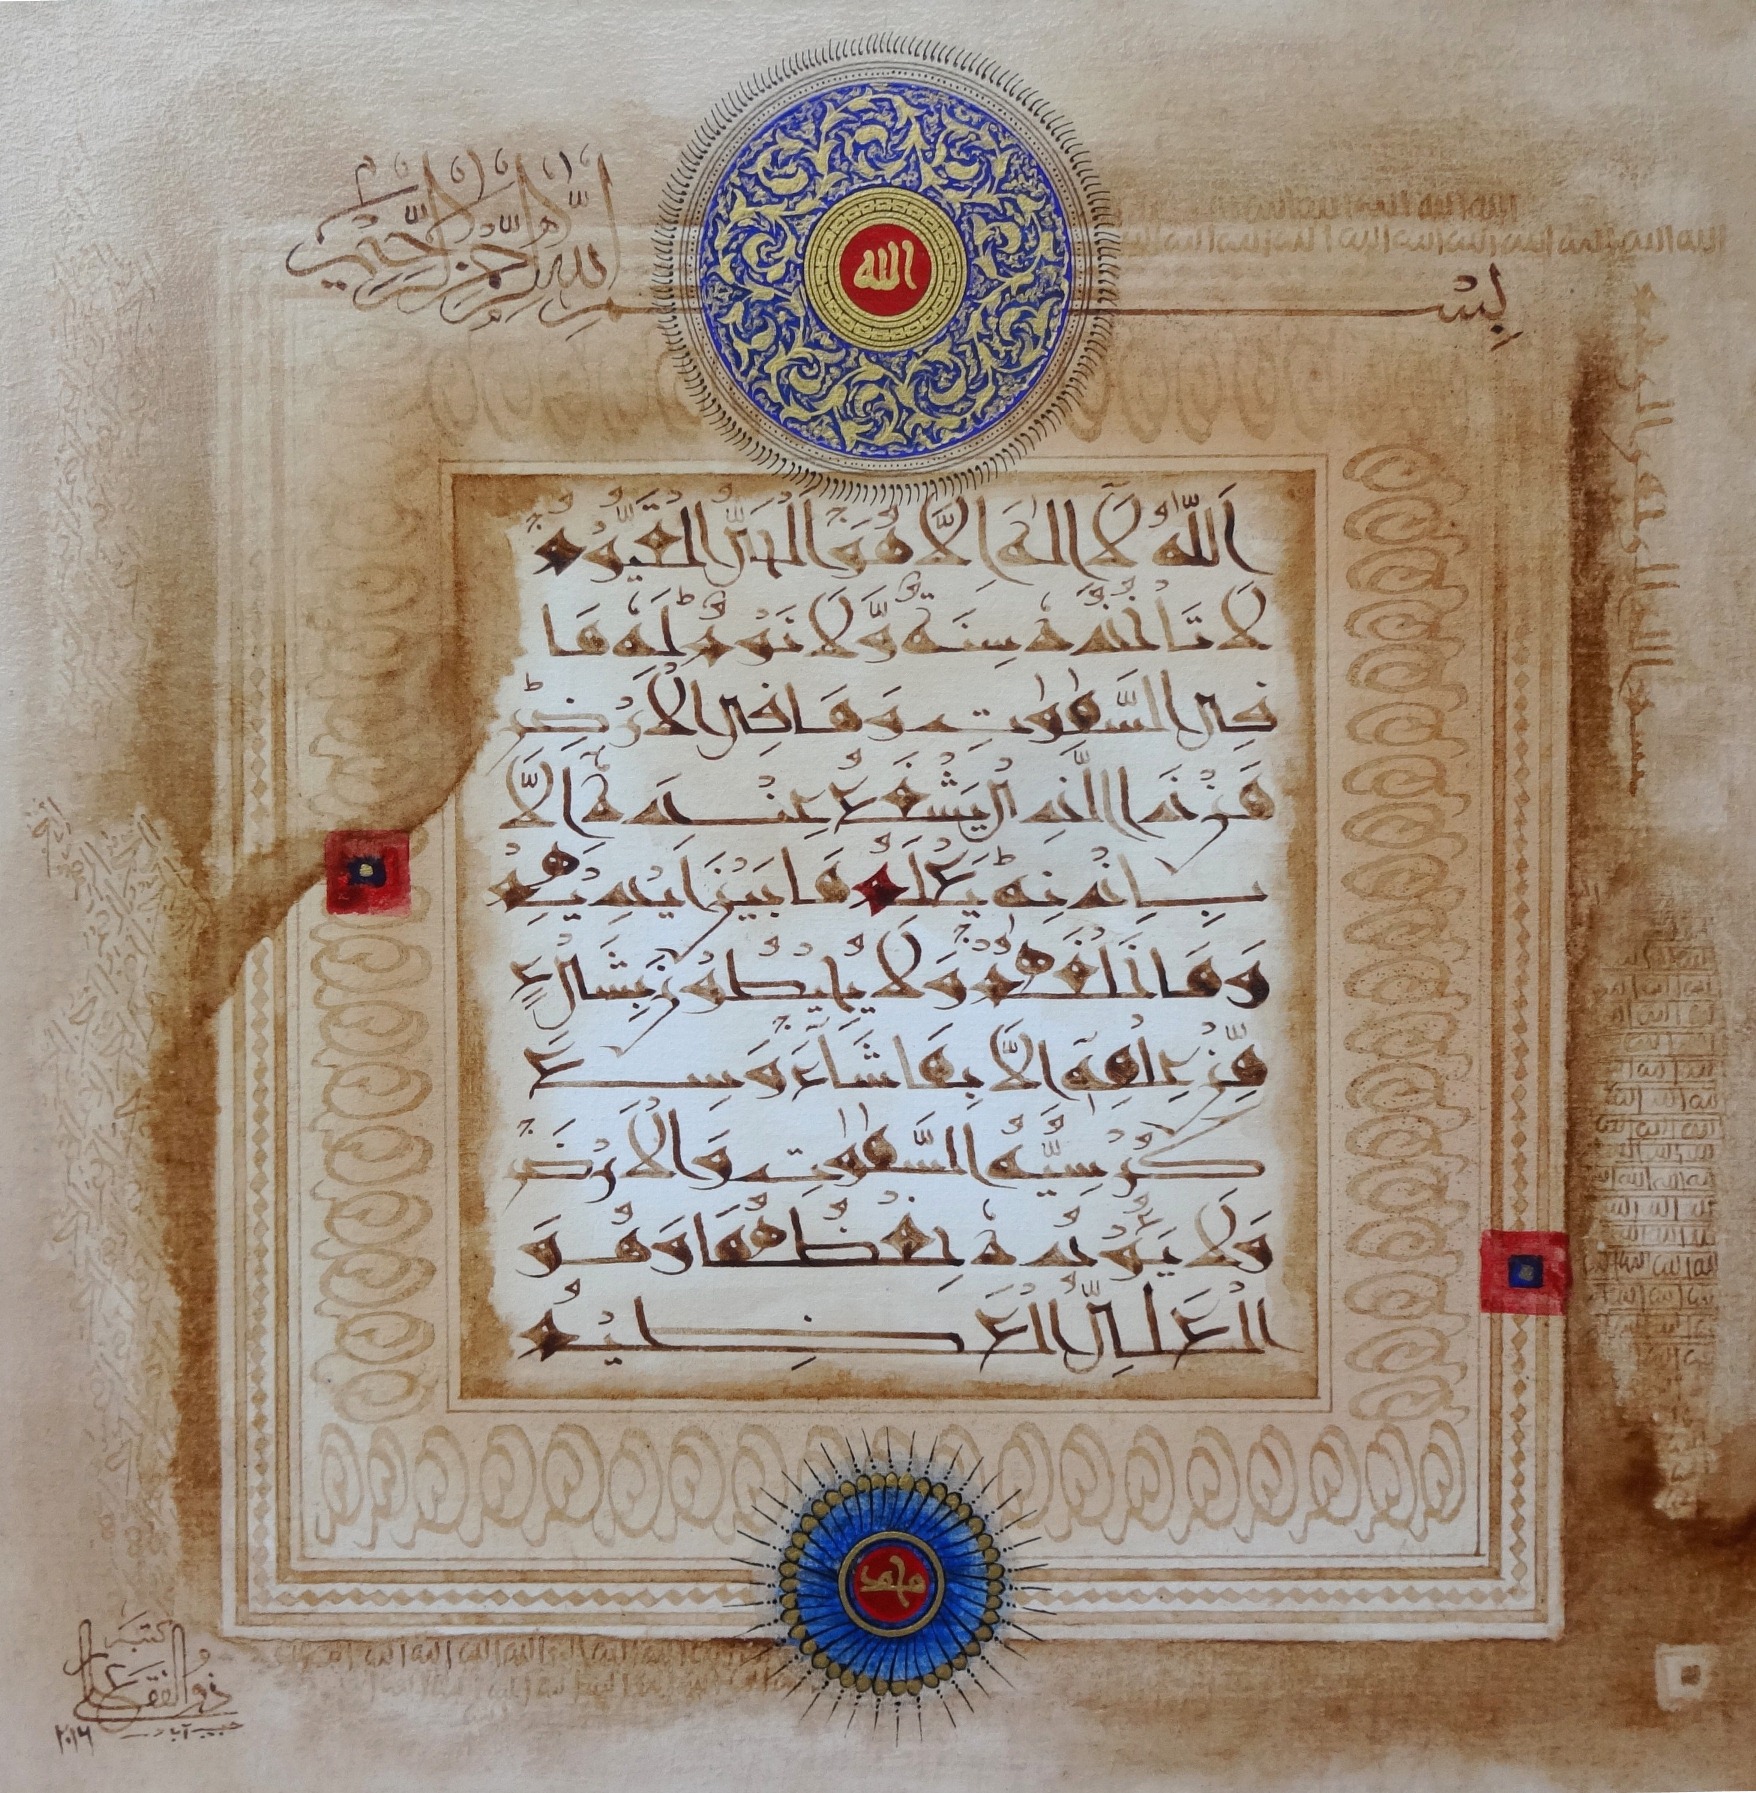 بِسْمِ اللهِ الرَّحْمٰنِ الرَّحِيْمِ
الله
اَللّٰهُ لَآ اِلٰهَ اِلَّا هُوَ ۚ اَلْحَيُّ الْقَيُّوْمُ ۚ
لَا تَاْخُذُهٗ سِنَةٌ وَّلَا نَوْمٌ ؕ لَهٗ مَا
فِي السَّمٰوٰتِ وَمَا فِي الْاَرْضِ ؕ
مَنْ ذَا الَّذِيْ يَشْفَعُ عِنْدَهٗٓ اِلَّا
بِاِذْنِهٖ ؕ يَعْلَمُ مَا بَيْنَ اَيْدِيْهِمْ
وَمَا خَلْفَهُمْ ۚ وَلَا يُحِيْطُوْنَ بِشَيْءٍ
مِّنْ عِلْمِهٖٓ اِلَّا بِمَا شَآءَ ۚ وَسِعَ
كُرْسِيُّهُ السَّمٰوٰتِ وَالْاَرْضَ ۚ
وَلَا يَـُٔوْدُهٗ حِفْظُهُمَا ۚ وَهُوَ
الْعَلِيُّ الْعَظِيْمُ
محمد
كتبه
ذوالفقار علی
حبيب آباد
۲۰۱۶